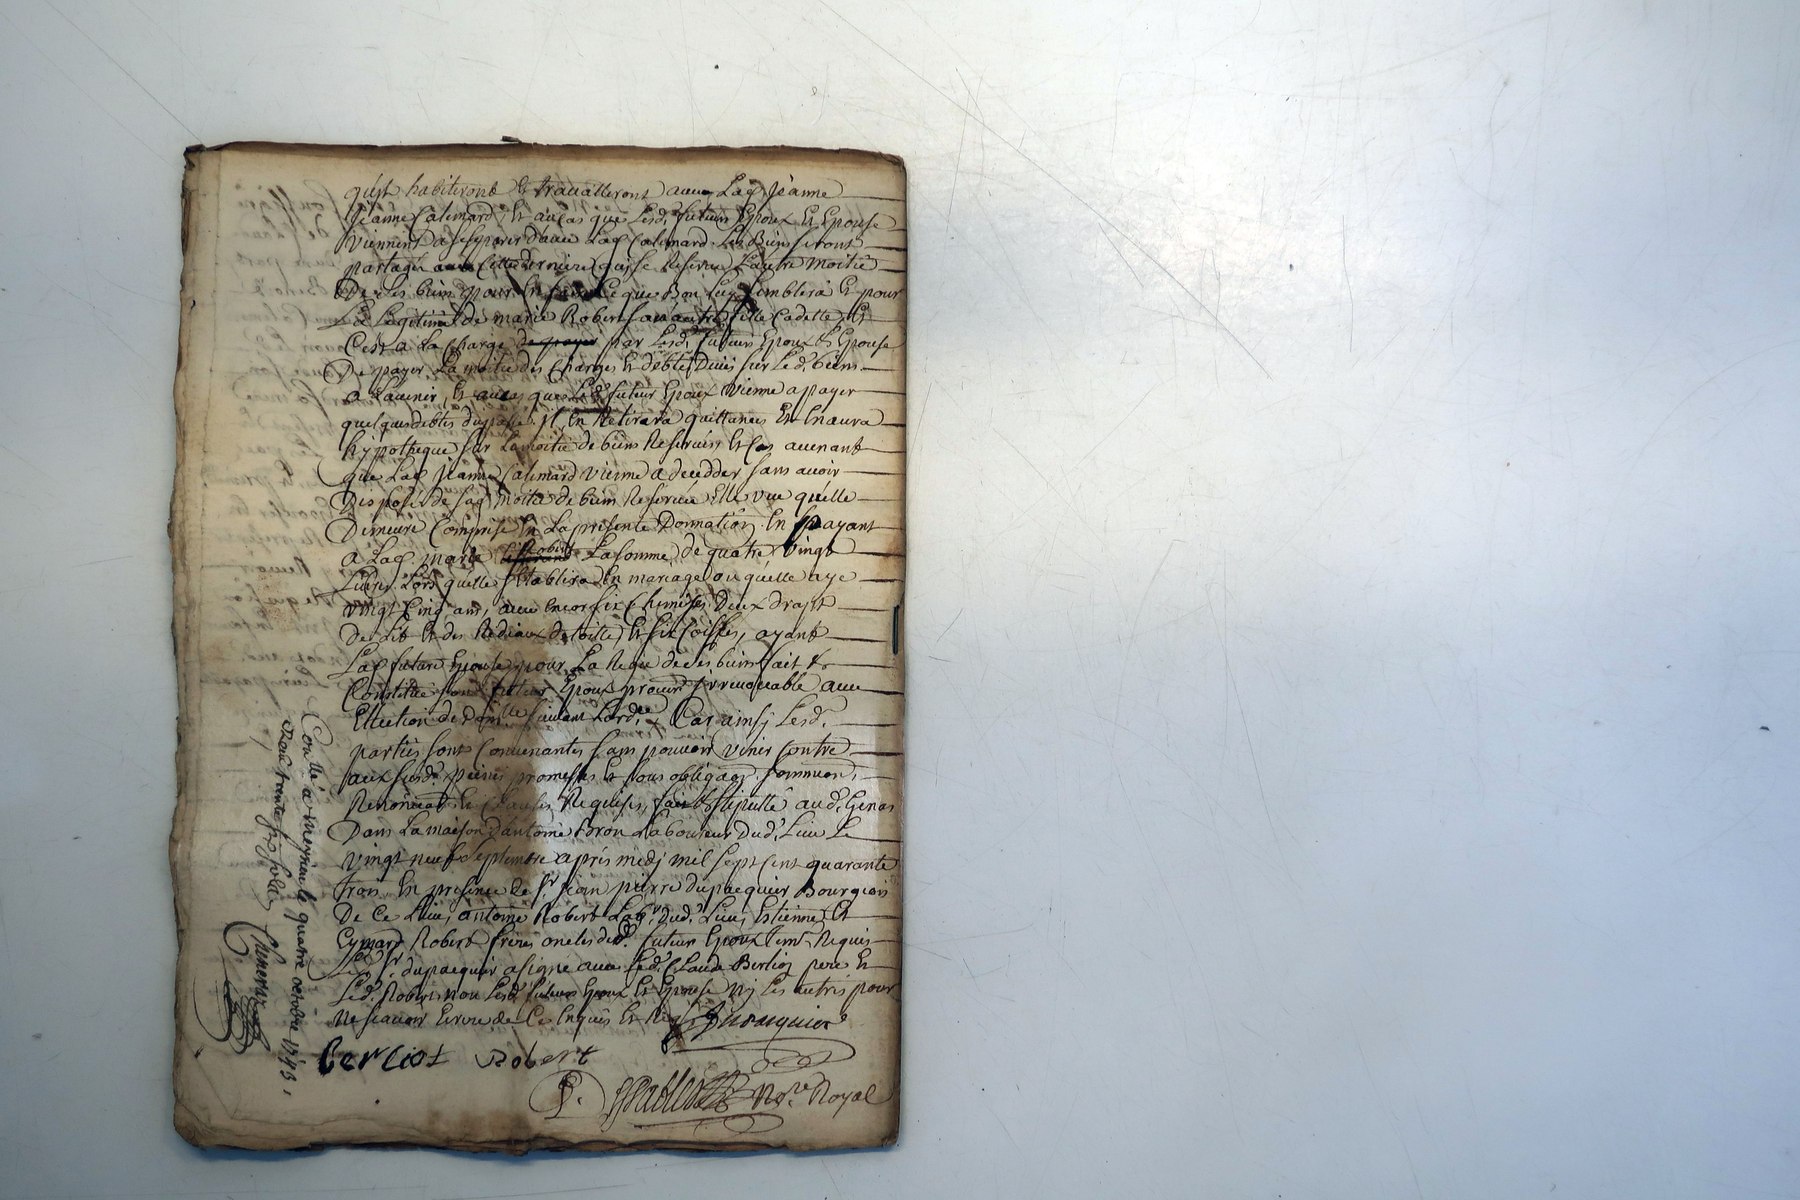 qu'ils habiteront & travailleront avec Lad. Jeanne
Jeanne Calimard, Et au cas que Lesd. futurs Epoux Et Epouse
viennent a se separer d'avec Lad. Calimard Les Biens seront
partagés Cette derniere qui se Reserve L'autre moitié
De ses biens pour En faire Ce que Bon Luy semblera Et pour
La Legitime de marie Robert sa fille Cadette Et
C'est a La Charge par Lesd. futurs Epoux Et Epouse
De payer La moitié des Charges Et debtes Deües sur Led. biens
a L'avenir, Et au cas que Led. futur Epoux vienne a payer
quelques debtes du passé Il En Retirera quittances Et En aura
hipotheque sur La moitié de biens Reservés Et Cas avenant
que Lad. Jeanne Calimard vienne a decedder sans avoir
Disposé de sad. moitié de biens Reservée Elle veu qu'elle
Demeure Comprise En La presente Donnation En payant
a Lad. marie Robert La somme de quatre vingt
Livres Lors qu'elle s'Etablira En mariage ou qu'elle aye
vingt Cinq ans, avec Encor six Chemises Deux draps
De Lit Et des Rideaux de toille, Et six Coiffes, ayant
Lad. future Epouse pour La Regie de ses biens fait &
Constitué son futur Epoux procur. Irrevocable avec
Ellection de Dom.lle suivant L'ord.ce Car ainsy Lesd.
parties sont Convenantes sans pouvoir venir Contre
aux susd. peines promesses Et sous obligaon. sommions.
Renonciaon. Et Clauses Requises, fait & stipullé aud. Genas
Dans La maison d'antoine Boron Laboureur Dud. Lieu Le
vingt neuf Septembre apres midy mil sept Cent quarante
trois En presence de Sr. Jean pierre dupacquier Bourgeois
De Ce Lieu, antoine Robert Lab. Dud. Lieu, Estienne Et
Eymard Robert freres oncles dud. futur Epoux Tem. Requis
Led. Sr. dupacquier a signé avec Led. Claude Berlioz pere Et
Led. Robert non Lesd. futurs Epoux Et Epouse ny Les autres pour
ne scavoir Ecrire de Ce Enquis Et Req.
berliot Robert
No.re Royal
Con.llé a meyzieu le quatre octobre 1743,
Recu trente six sols